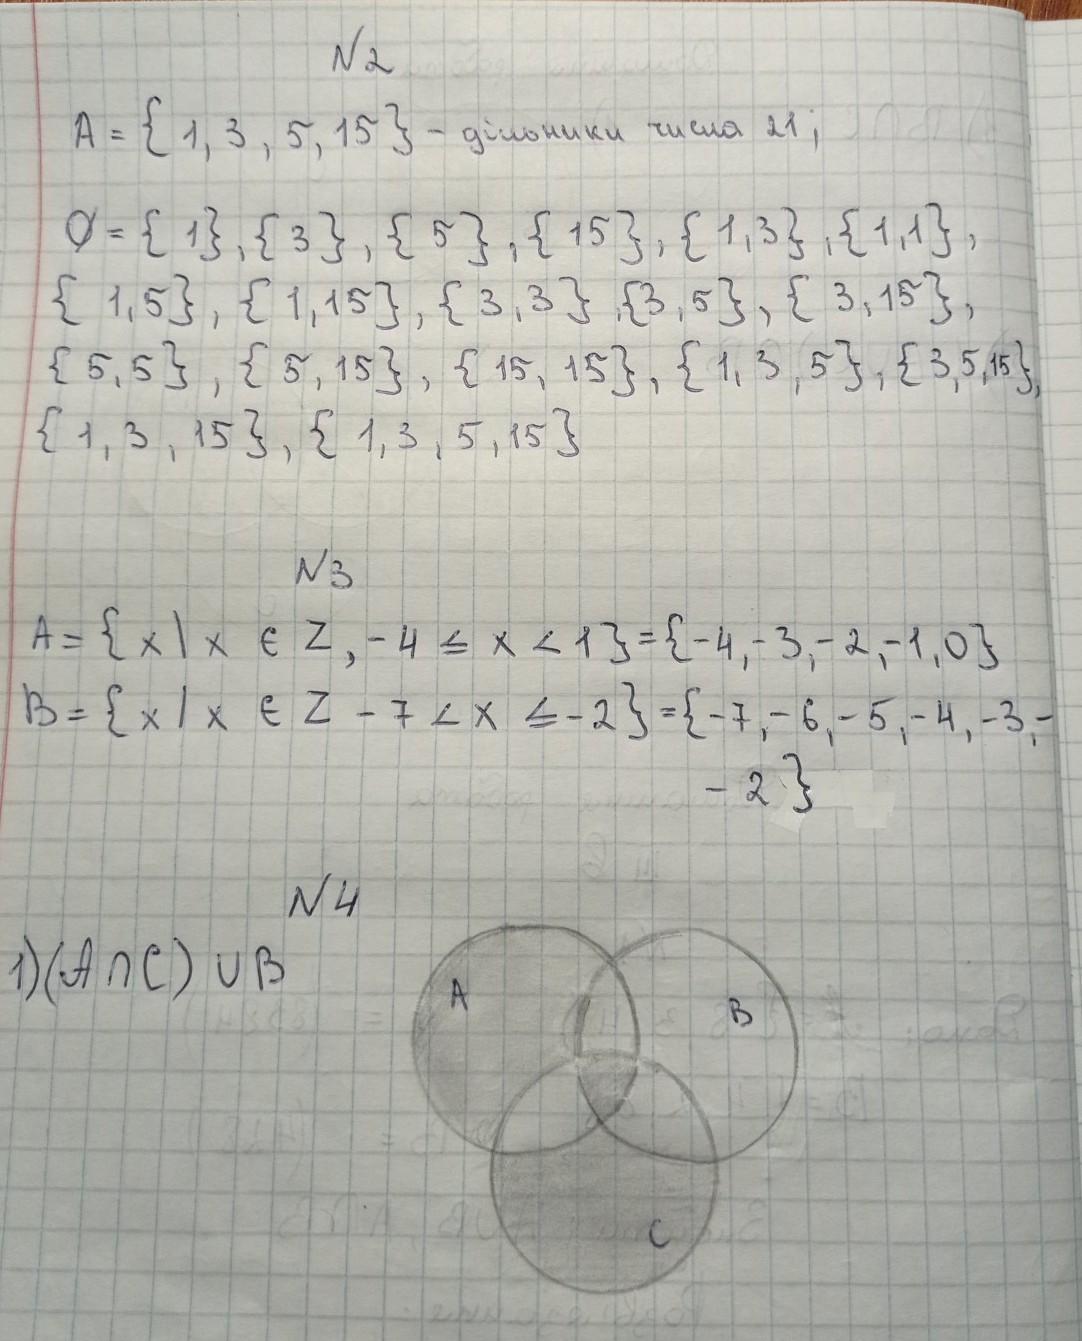 №2
A = { 1, 3, 5, 15 } - дільники числа 21;
Ø = { 1 }, { 3 }, { 5 }, { 15 }, { 1, 3 }, { 1, 1 },
{ 1, 5 }, { 1, 15 }, { 3, 3 }, { 3, 5 }, { 3, 15 },
{ 5, 5 }, { 5, 15 }, { 15, 15 }, { 1, 3, 5 }, { 3, 5, 15 },
{ 1, 3, 15 }, { 1, 3, 5, 15 }
№3
A = { x | x ∈ Z, -4 ≤ x < 1 } = { -4, -3, -2, -1, 0 }
B = { x | x ∈ Z -7 < x ≤ -2 } = { -7, -6, -5, -4, -3, -
- 2 }
№4
1) (A ∩ C) ∪ B
A
B
C